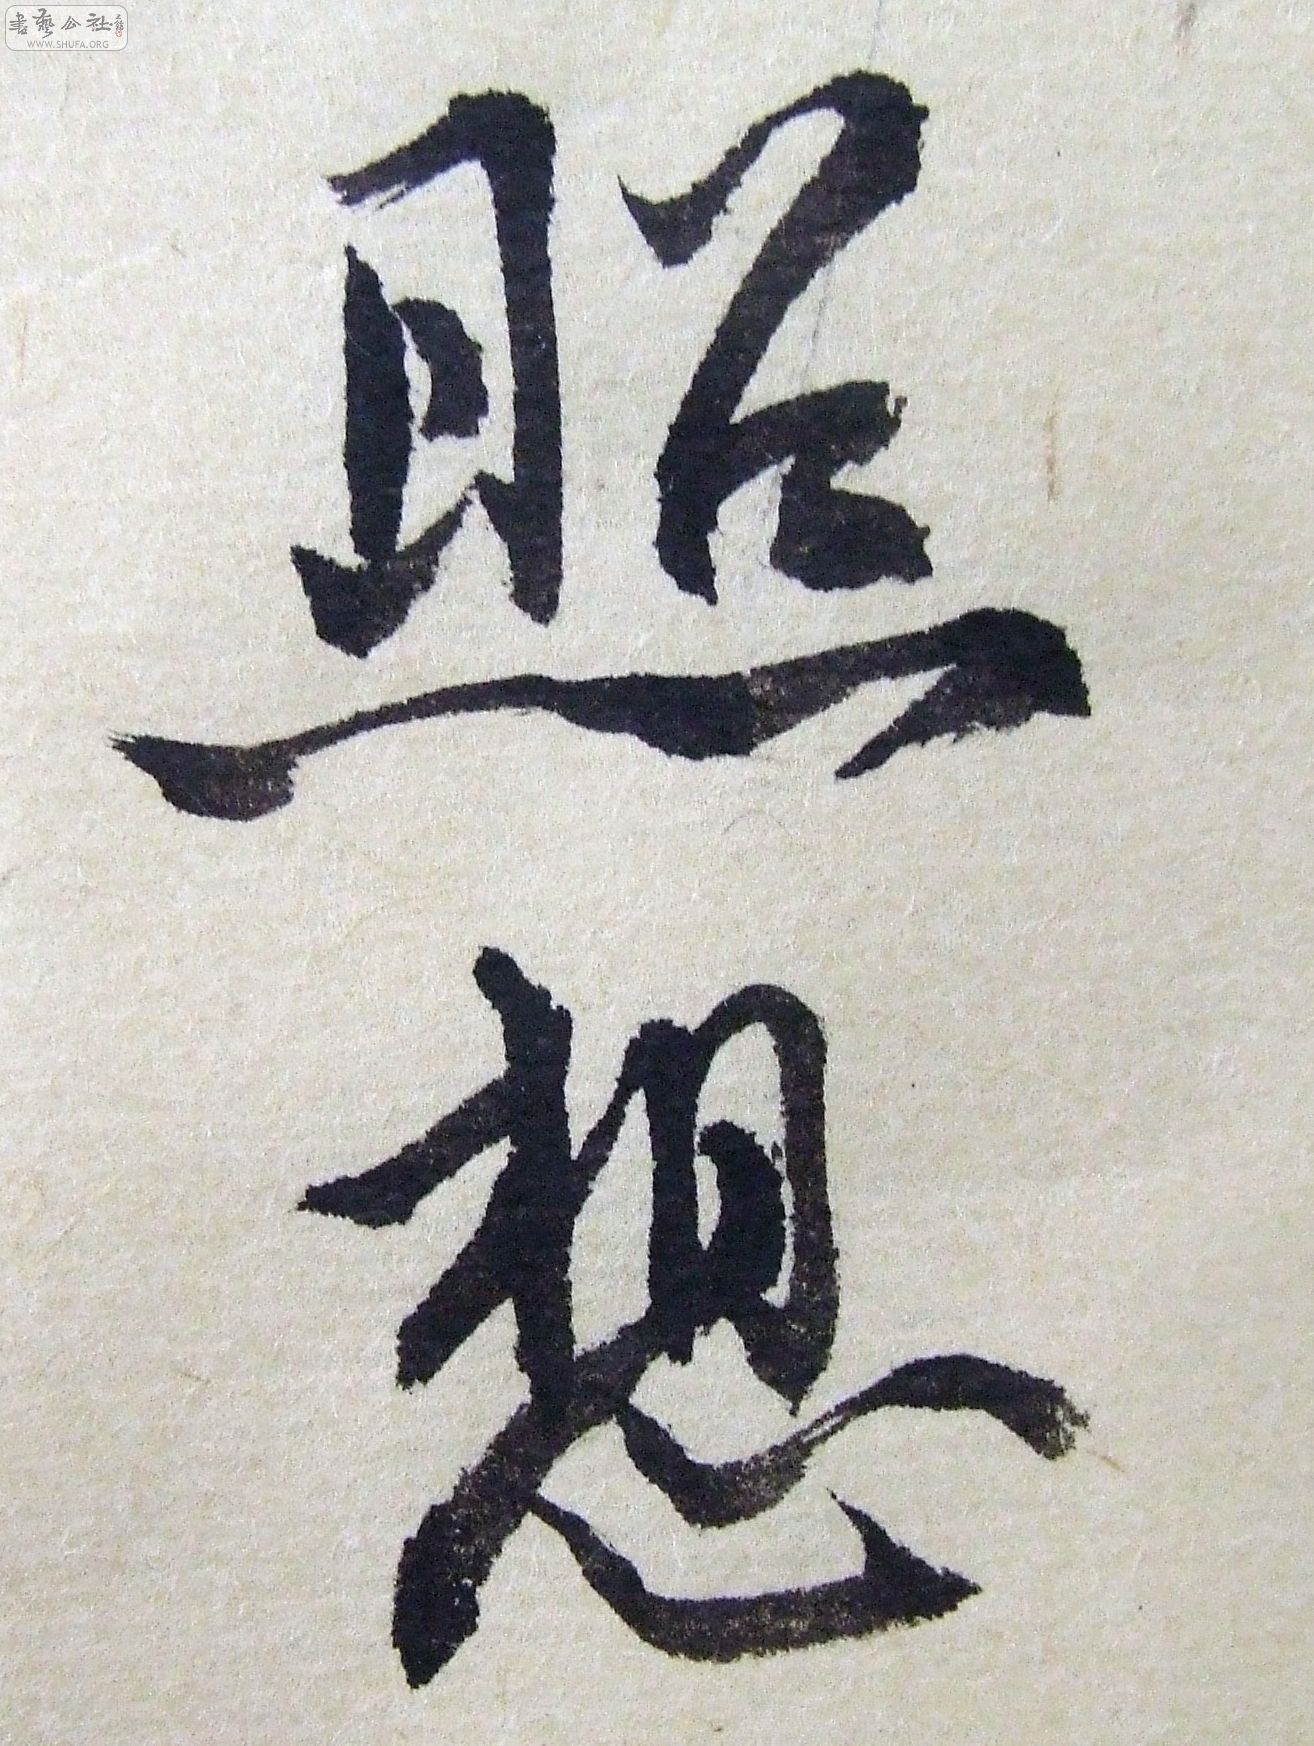 書藝公社
WWW.SHUFA.ORG
照
想